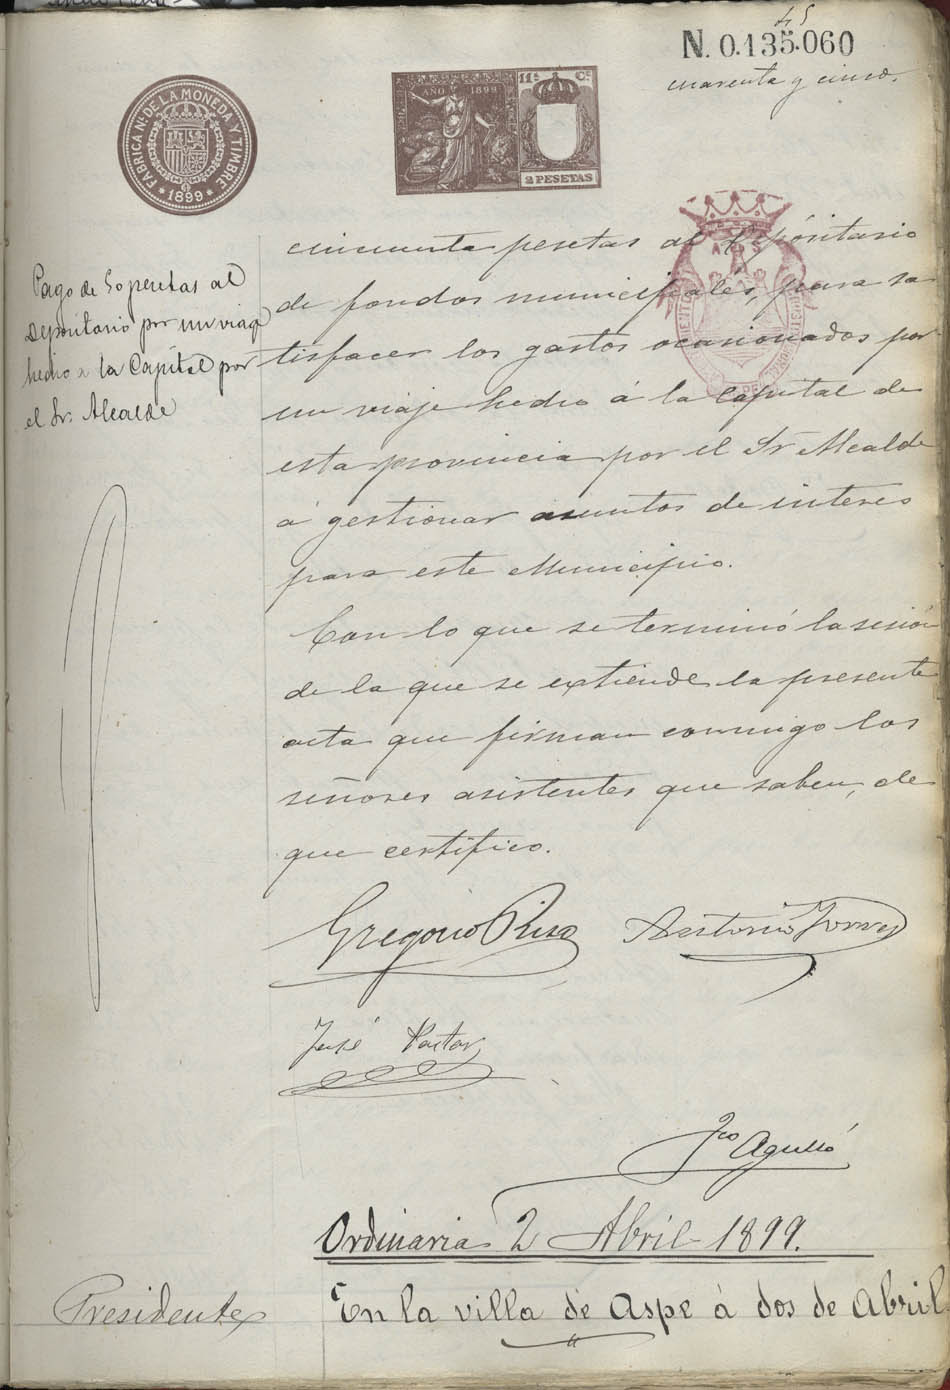 45
N. 0.135.060
cuarenta y cinco.
FABRICA Nal. DE LA MONEDA Y TIMBRE
* 1899 *
AÑO 1899
11ª Cª
2 PESETAS
Pago de 50 pesetas al
Depositario por un viaje
hecho a la Capital por
el Sr. Alcalde
cincuenta pesetas al Depósitario
de fondos municipales, para sa
tisfacer los gastos ocasionados por
un viaje hecho á la Capital de
esta provincia por el Sr Alcalde
á gestionar asuntos de interes
para este Municipio.
Con lo que se terminó la sesión
de la que se extiende la presente
acta que firman conmigo los
señores asistentes que saben, de
que certifico.
Gregorio Antonio Torres
José Pastor
Fco Agulló
Ordinaria 2 Abril 1899.
Presidente
En la villa de Aspe á dos de Abril